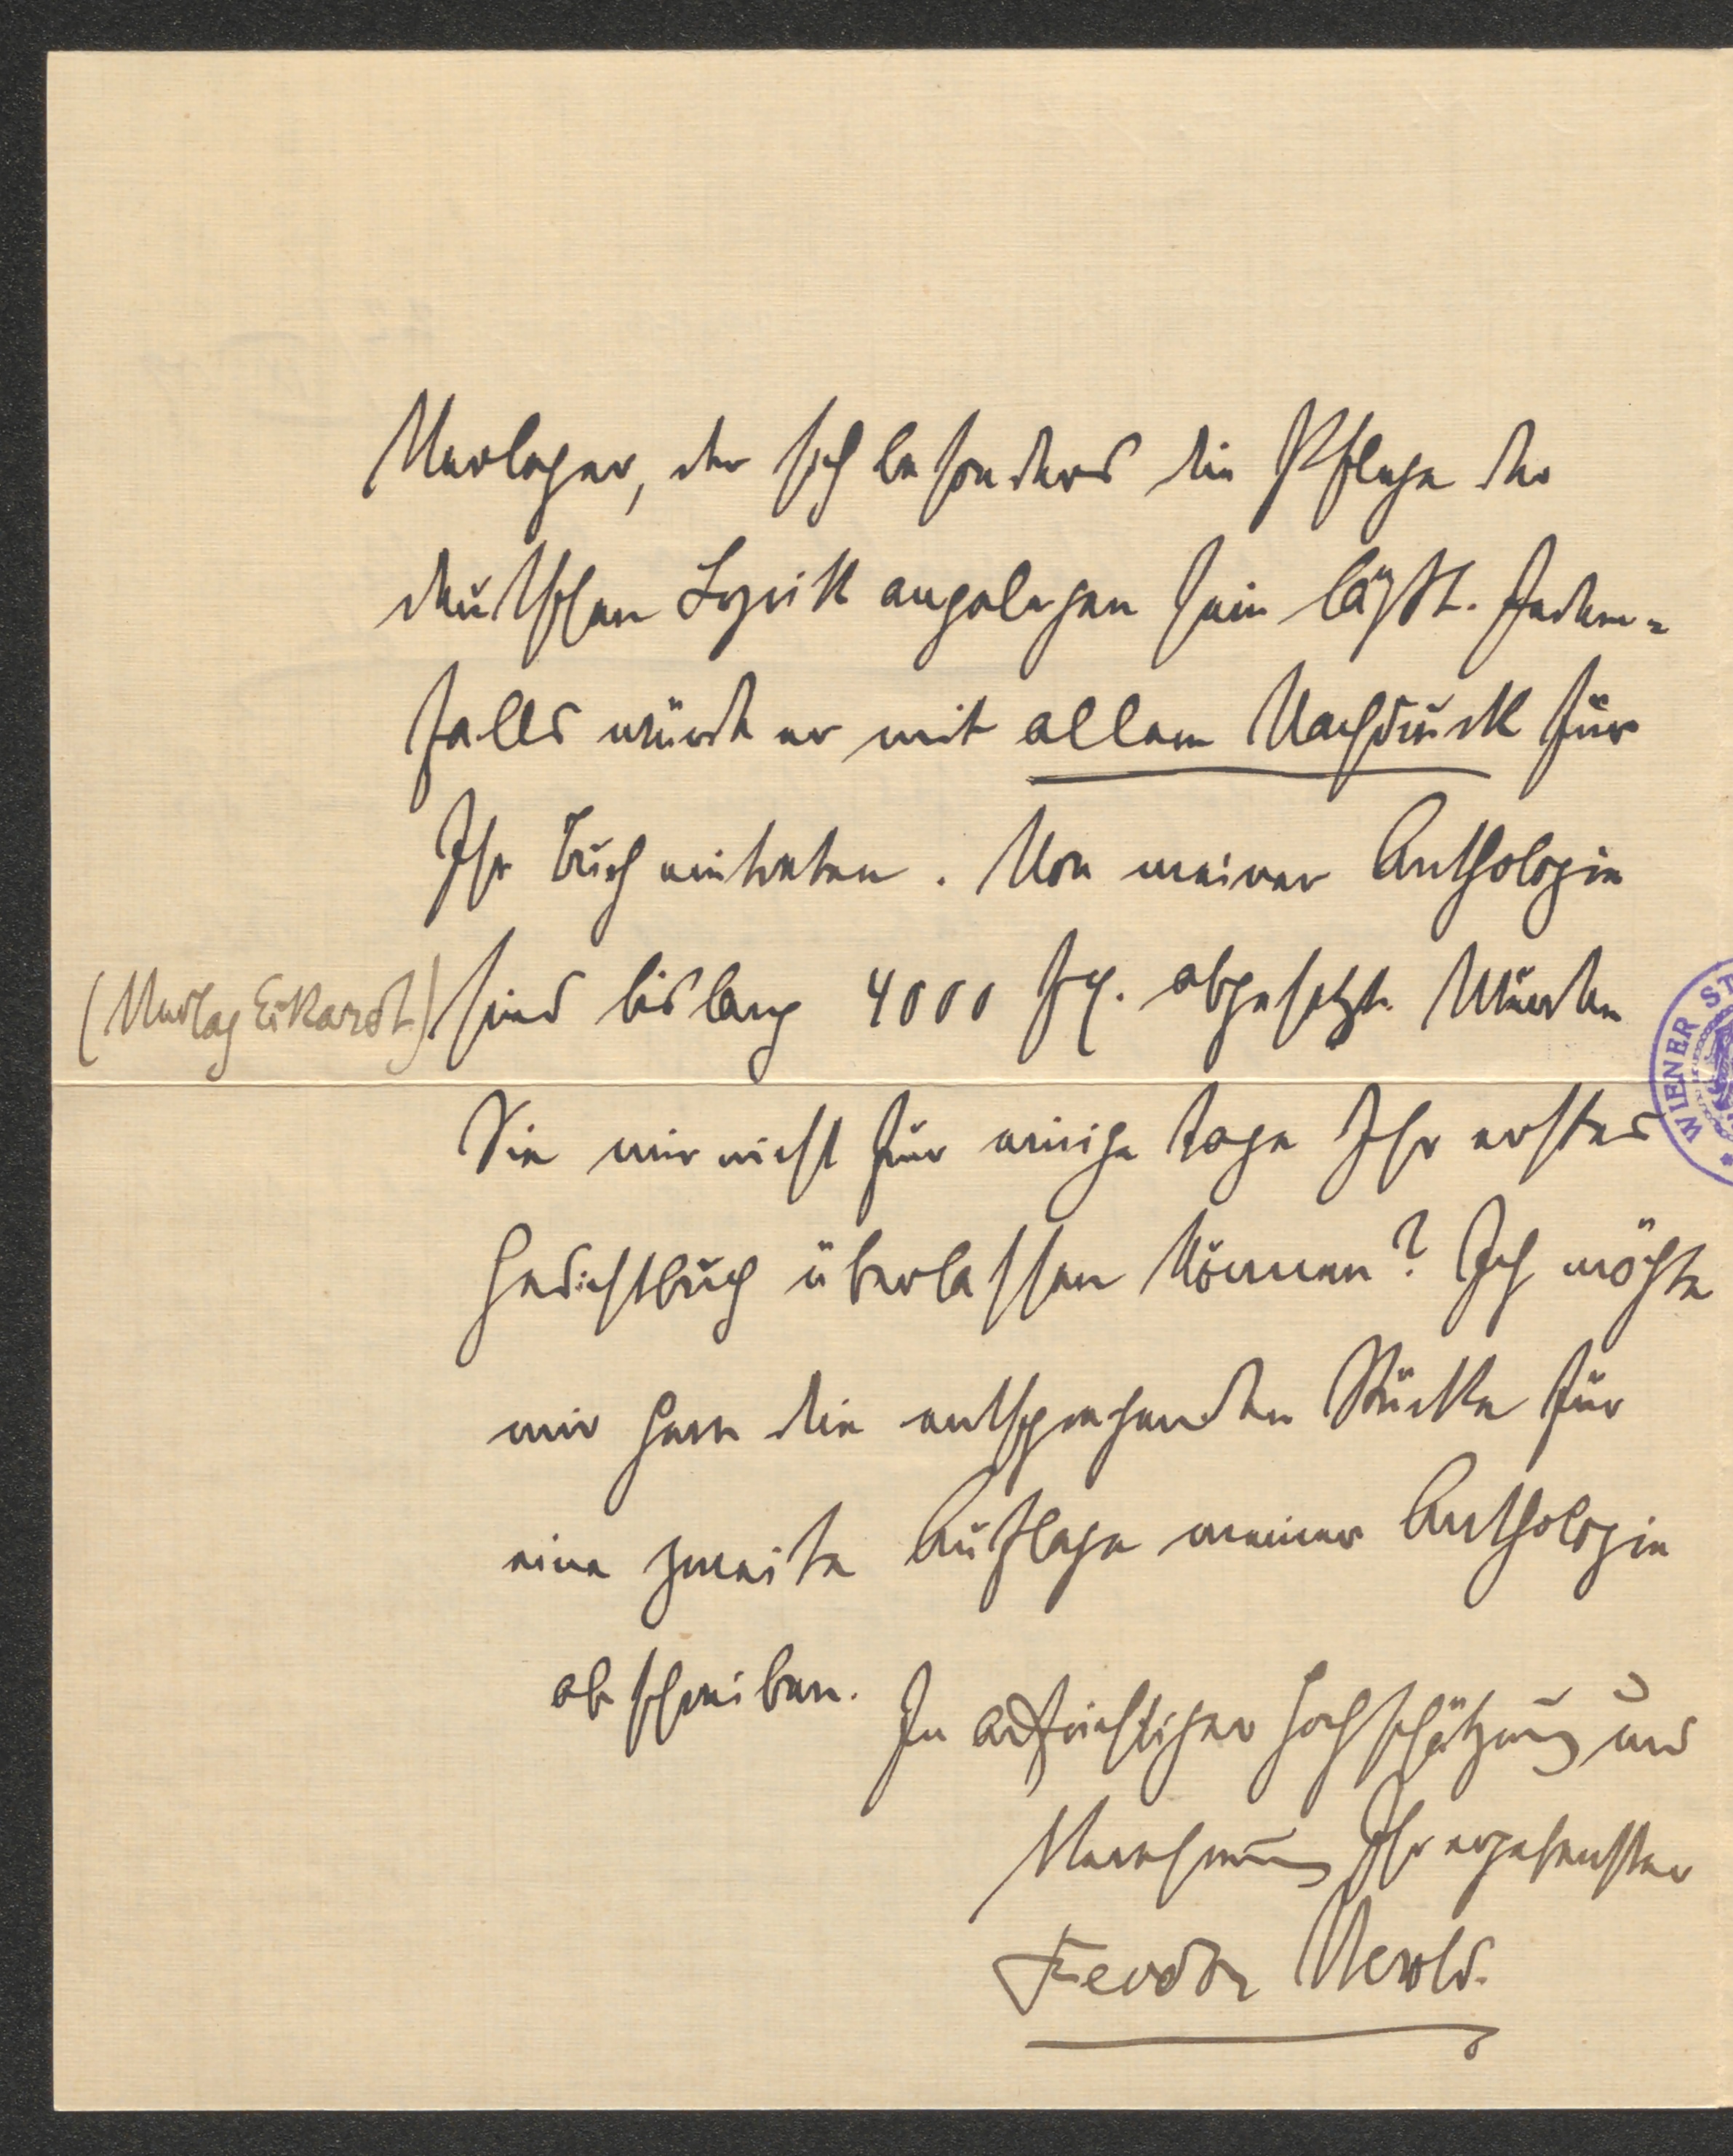 Verleger, der sich besonders die Pflege der
deutschen Lyrik angelegen sein läßt. Jeden=
falls würde er mit allem Nachdruck für
Ihr Buch eintreten. Von meiner Anthologie
(Verlag Eckardt) sind bislang 4000 Ex. abgesetzt. Würden
Sie mir nicht für einige Tage Ihr erstes
Gedichtbuch überlassen können? Ich möchte
mir gern die entsprechenden Stücke für
eine zweite Auflage meiner Anthologie
abschreiben.
In aufrichtiger Hochschätzung und
Verehrung Ihr ergebenster
WIENER ST